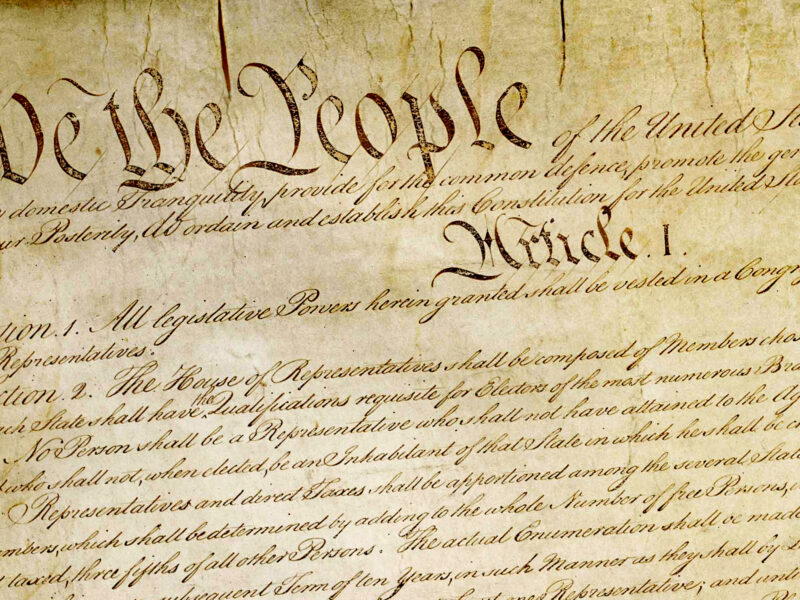 We the People of the United Sta
domestic Tranquility, provide for the common defence, promote the gen
our Posterity, do ordain and establish this Constitution for the United Sta
Article. I.
tion. 1. All legislative Powers herein granted shall be vested in a Congr
Representatives.
ction. 2. The House of Representatives shall be composed of Members chos
ach State shall have the Qualifications requisite for Electors of the most numerous Bra
No Person shall be a Representative who shall not have attained to the Ag
who shall not, when elected, be an Inhabitant of that State in which he shall be c
Representatives and direct Taxes shall be apportioned among the several Stat
mbers, which shall be determined by adding to the whole Number of free Persons, in
t taxed, three fifths of all other Persons. The actual Enumeration shall be made
subsequent Term of ten Years, in such Manner as they shall by L
one Representative; and unti